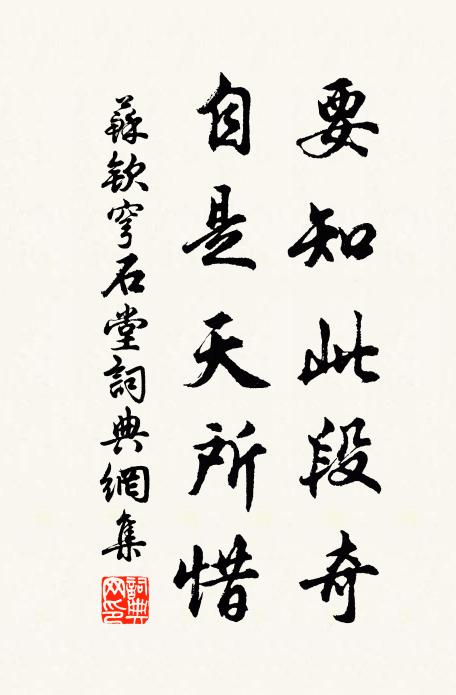 要知此段奇
自是天所惜
蘇欽穹石堂詞典網集
詞典網印